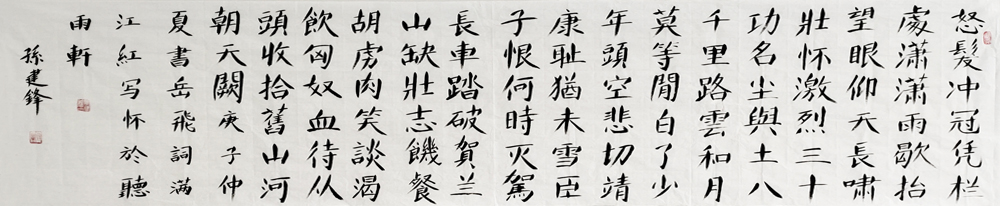 怒髮冲冠凭栏
處潇潇雨歇抬
望眼仰天長啸
壯怀激烈三十
功名尘與土八
千里路雲和月
莫等閒白了少
年頭空悲切靖
康耻猶未雪臣
子恨何時灭駕
長車踏破賀兰
山缺壯志饑餐
胡虏肉笑談渴
飲匈奴血待从
頭收拾舊山河
朝天闕庚子仲
夏書岳飛詞满
江紅写怀於聽
雨軒
孫建鋒